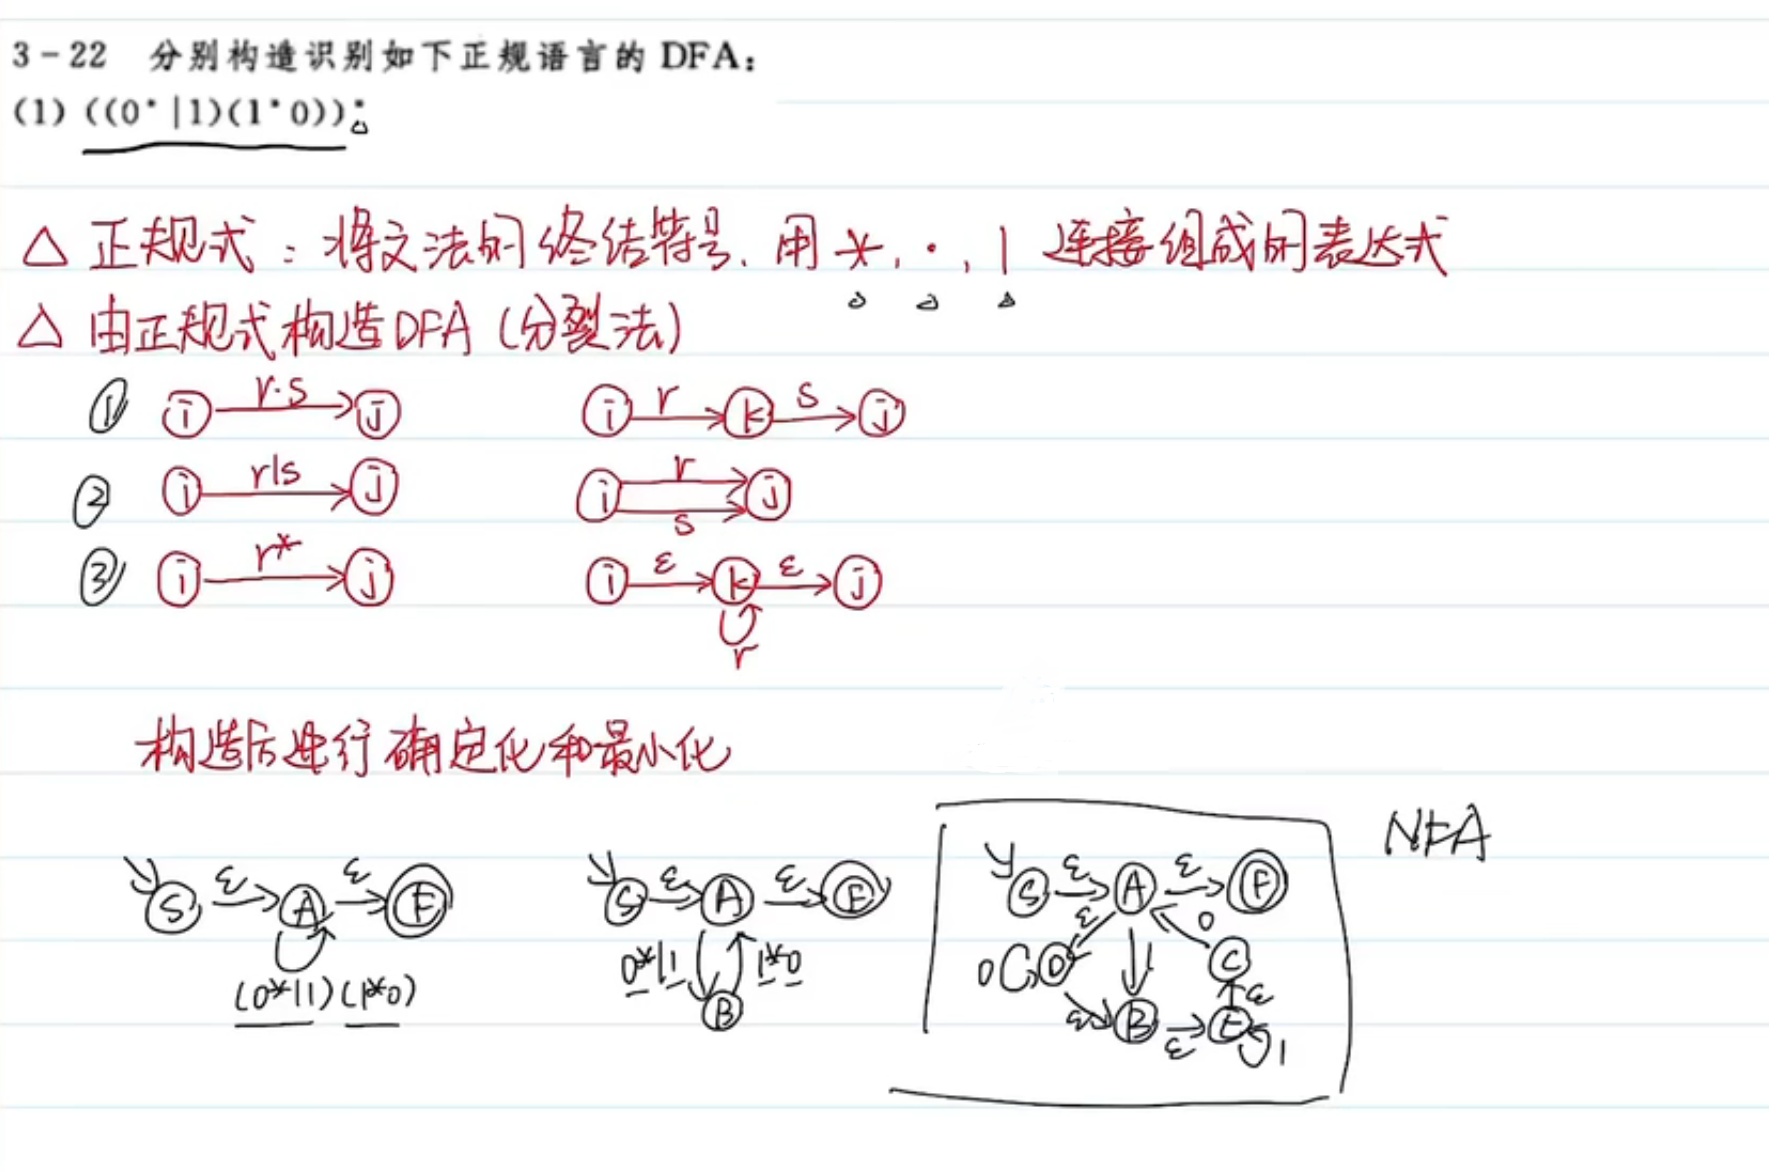 3-22 分别构造识别如下正规语言的 DFA:
(1) ((0*|1)(1*0))*;
△ 正规式:将文法的终结符号、用 *, ·, | 连接组成的表达式
△ 由正规式构造DFA (分裂法)
① i r·s j i r k s j
② i r|s j i r s j
③ i r* j i ε k ε j r
构造后进行确定化和最小化
S ε A ε F (0*|1)(1*0)
S ε A ε F 0*|1 1*0 B
S ε A ε F ε 0 0 D 1 C ε B ε E ε 1
NFA